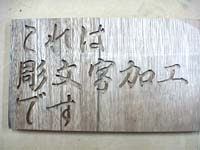 これは
彫文字加工
です